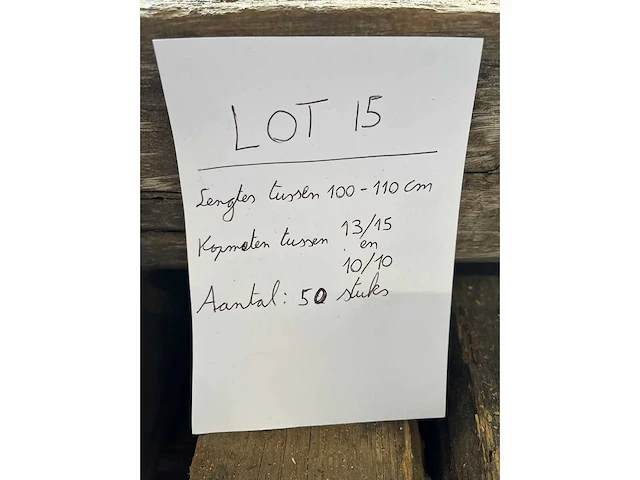 LOT 15
Lengtes tussen 100-110 cm
Kopmaten tussen 13/15
en
10/10
Aantal: 50 stuks